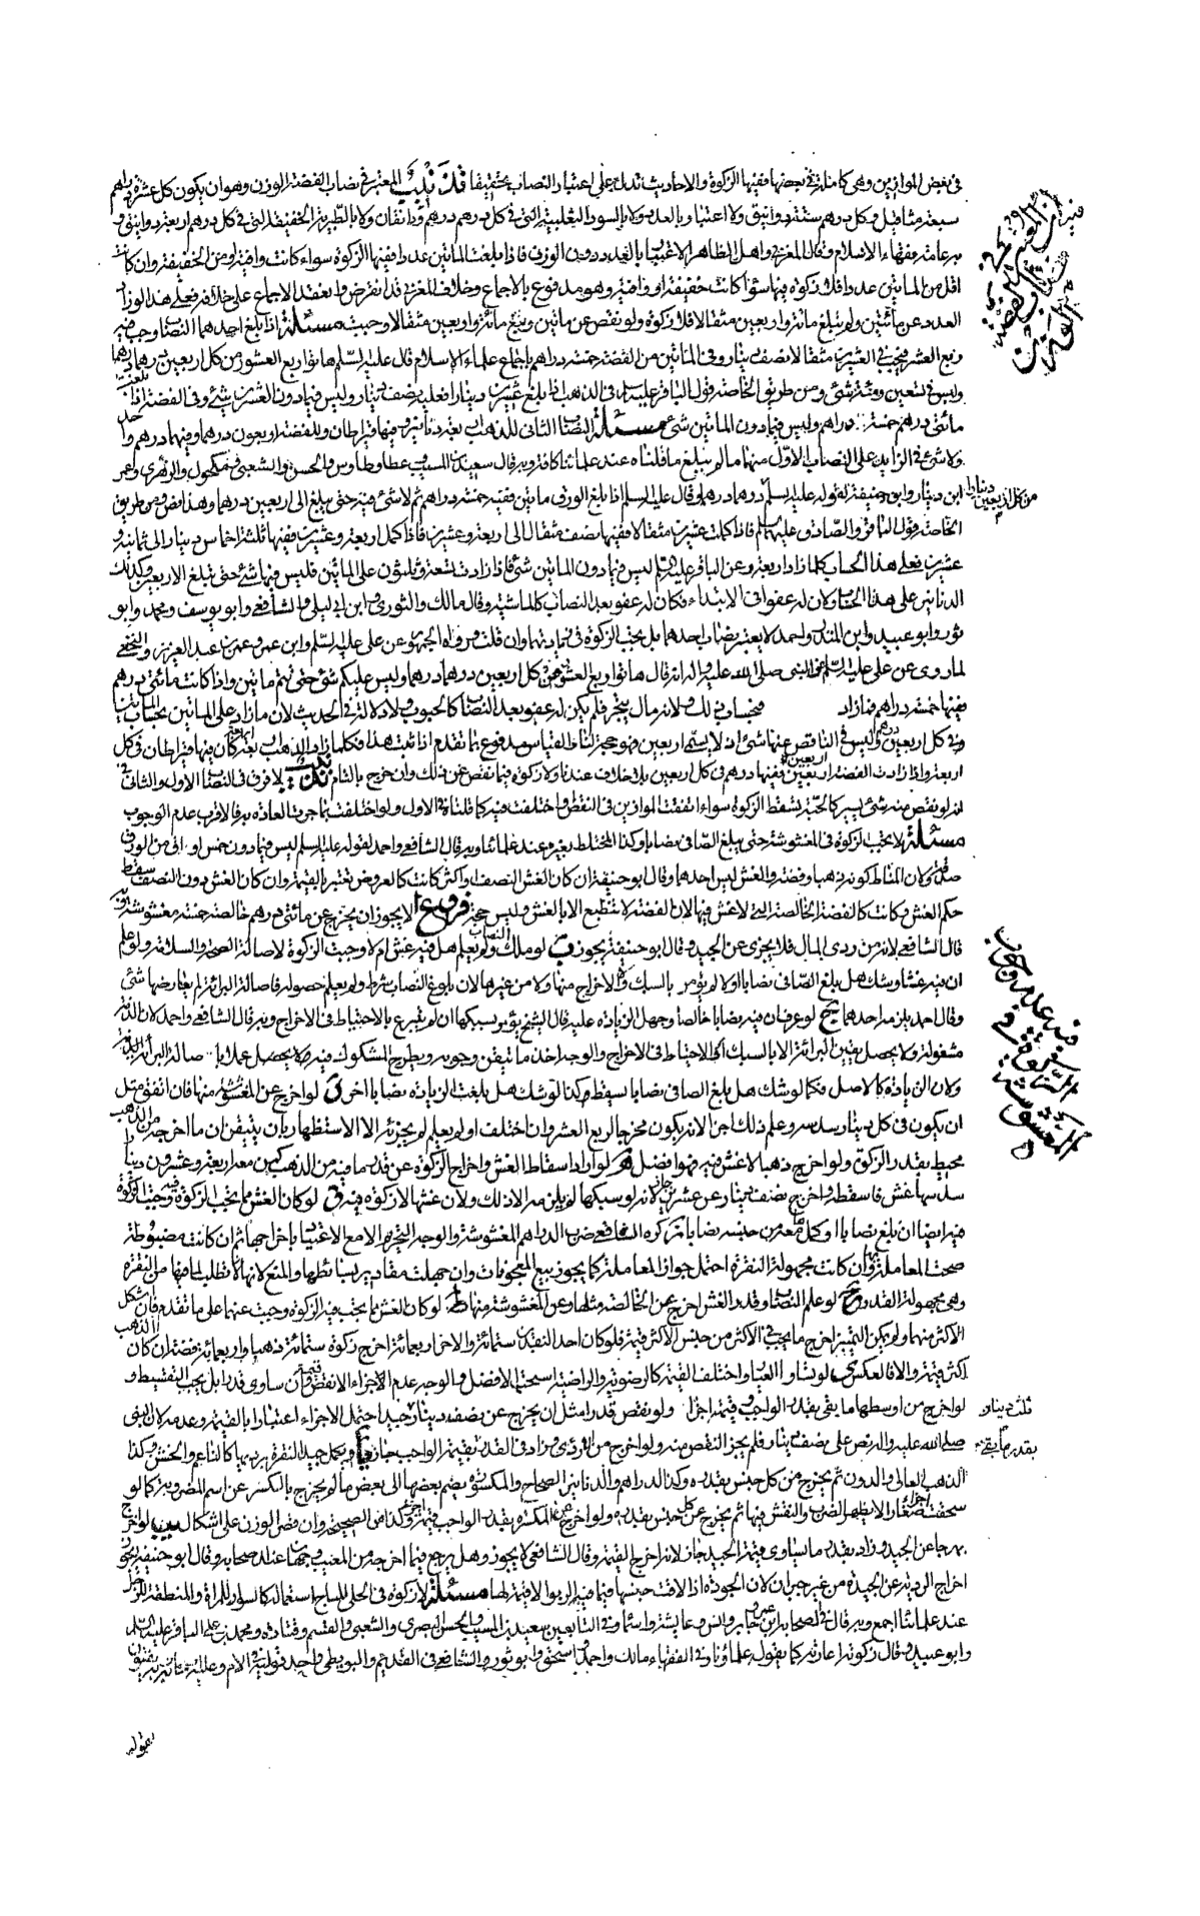 في بعض الموازين وهي كاملة في بعضها ففيها الزكوة والاحاديث تدل على اعتبار النصاب تحقيقا تذنيب المعتبر في نصاب الفضة الوزن وهو ان يكون كل عشرة دراهم
سبعة مثاقيل وكل درهم ستة دوانيق ولا اعتبار بالعدد ولا بالسود البغلية التي في كل درهم درهم ودانقان ولا بالطبرية الخفيفة التي في كل درهم اربعة دوانيق و
به عامة فقهاء الاسلام وقال المغربي واهل الظاهر الاعتبار بالعدد دون الوزن فاذا بلغت المأتين عددا ففيها الزكوة سواء كانت وافية او من الخفيفة وان كانت
اقل من المأتين عددا فلا زكوة فيها سواء كانت خفيفة او وافية وهو مدفوع بالاجماع وخلاف المغربي قد انقرض وانعقد الاجماع على خلافه فعلى هذا لو زاد
العدد عن مأتين ولم تبلغ مائة واربعين مثقالا فلا زكوة ولو نقص عن مأتين وبلغ مائة واربعين مثقالا وجبت مسئلة اذا بلغ احدهما النصاب وجب فيه
ربع العشر فيجب في العشرين مثقالا نصف دينار وفي المأتين من الفضة خمسة دراهم باجماع علماء الاسلام قال عليه السلم هاتوا ربع العشور من كل اربعين درهما درهما
وليس في تسعين ومائة شئ ومن طريق الخاصة قول الباقر عليه السلم في الذهب اذا بلغ عشرين دينارا فعليه نصف دينار وليس فيما دون العشرين شئ وفي الفضة اذا بلغت
مأتي درهم خمسة دراهم وليس فيما دون المأتين شئ مسئلة النصاب الثاني للذهب اربعة دنانير وفيها قيراطان وللفضة اربعون درهما وفيها درهم واحد
ولا شئ في الزايد على النصاب الاول منهما ما لم يبلغ ما قلناه عند علمائنا كافة وبه قال سعيد بن المسيب وعطا وطاوس والحسن والشعبي ومكحول والزهري وعمر
ابن دينار وابو حنيفة لقوله عليه السلم من كل اربعين درهما درهم وقال عليه السلم اذا بلغ الورق مأتين ففيه خمسة دراهم ثم لا شئ فيه حتى يبلغ الى اربعين درهما وهذا نص ومن طريق
الخاصة قول الباقر والصادق عليهما السلم فاذا كملت عشرين مثقالا ففيها نصف مثقال الى اربعة وعشرين فاذا كمل اربعة وعشرين ففيها ثلثة اخماس دينار الى ثمانية و
عشرين فعلى هذا الحساب كلما زاد اربعة وعن الباقر عليه السلم ليس فيما دون المأتين شئ فاذا زادت تسعة وثلثون على المأتين فليس فيها شئ حتى تبلغ الاربعين وكذلك
الدنانير على هذا الحساب ولان له عفوا في الابتداء فكان له عفو بعد النصاب كالماشية وقال مالك والثوري وابن ابي ليلى والشافعي وابو يوسف ومحمد وابو
ثور وابو عبيد وابن المنذر واحمد لا يعتبر نصاب احدهما بل يجب الزكوة في زيادتها وان قلت ورواه الجمهور عن علي عليه السلم وابن عمر وعمر بن عبد العزيز والنخعي
لما روي عن علي عليه السلم عن النبي صلى الله عليه واله انه قال هاتوا ربع العشور من كل اربعين درهما درهما وليس عليكم شئ حتى تتم مأتين واذا كانت مأتي درهم
ففيها خمسة دراهم فما زاد فبحساب ذلك ولانه مال يتجر فلم يكن له عفو بعد النصاب كالحبوب ولا دلالة في الحديث لان ما زاد على المأتين بحساب المأتين
وفي كل اربعين درهم وليس في الناقص عنها شئ
اربعة واذا زادت الفضة اربعين ففيها درهم في كل اربعين بلا خلاف عندنا ولا زكوة فيما نقص عن ذلك وان خرج بالتام تذنيب لا فرق في النصاب الاول والثاني في
انه لو نقص منه شئ يسير كالحبة يسقط الزكوة سواء اتفقت الموازين في النقص او اختلفت فيه كما قلناه في الاول ولو اختلفت بما جرت العادة به فالاقرب عدم الوجوب
مسئلة لا يجب الزكوة في المغشوشة حتى يبلغ الصافي نصابا وكذا المختلط بغيره عند علمائنا وبه قال الشافعي واحمد لقوله عليه السلم ليس فيما دون خمس اواقي من الورق
صدقة ولان المناط كونه ذهبا وفضة والغش ليس احدهما وقال ابو حنيفة ان كان الغش النصف او اكثر كانت كالعروض تعتبر بالقيمة وان كان الغش دون النصف سقط
حكم الغش وكانت كالفضة الخالصة التي لا غش فيها لان الفضة لا تنطبع الا بالغش وليس حجة فروع ا لا يجوز ان يخرج عن مأتي درهم خالصة خمسة مغشوشة وبه
قال الشافعي لانه من ردي المال فلا يجزي عن الجيد وقال ابو حنيفة يجوز ب لو ملك النصاب ولم يعلم هل فيه غش ام لا وجبت الزكوة لاصالة الصحة والسلامة ولو علم
ان فيه غشا وشك هل بلغ الصافي نصابا او لا لم يؤمر بالسبك ولا الاخراج منها ولا من غيرها لان بلوغ النصاب شرط ولم يعلم حصوله فاصالة البرائة لم يعارضها شئ
وقال احمد يلزمه احدهما ج لو عرف ان فيه نصابا خالصا وجهل الزيادة عليه قال الشيخ يؤمر بسبكها ان لم يتبرع بالاحتياط في الاخراج وبه قال الشافعي واحمد لان الذمة
مشغولة ولا يحصل يقين البرائة الا بالسبك او الاحتياط في الاخراج والوجه اخذ ما تيقن وجوبه ويطرح المشكوك فيه عملا باصالة البرائة
ولان الزيادة كالاصل فكما لو شك هل بلغ الصافي نصابا يسقط كذا لو شك هل بلغت الزيادة نصابا اخر د لو اخرج عن المغشوشة منها فان اتفق مثل
ان يكون في كل دينار سدس وعلم ذلك اجزأ لانه يكون مخرجا لربع العشر وان اختلف او لم يعلم لم يجزئه الا الاستظهار بان يتيقن ان ما اخرجه من الذهب
محيط بقدر الزكوة ولو اخرج ذهبا لا غش فيه فهو افضل ه لو اراد اسقاط الغش واخراج الزكوة عن قدر ما فيه من الذهب كمن معه اربعة وعشرون دينارا
سدسها غش فاسقطه واخرج نصف دينار عن عشرين جاز لانه لو سبكها لم يلزمه الا ذلك ولان غشها لا زكوة فيه و لو كان الغش مما يجب الزكوة فيه وجبت الزكوة
فيه ايضا ان بلغ نصابا او كمل معه من جنسه نصابا ز كره الشافعي ضرب الدراهم المغشوشة والوجه التحريم الا مع الاعتبار باخراجها ثم ان كانت مضبوطة
صحت المعاملة بها وان كانت مجهولة النقرة احتمل جواز المعاملة كما يجوز بيع المعجونات وان جهلت مقادير بسائطها والمنع لانها تطلب لما فيها من النقرة
وهي مجهولة القدر ح لو علم النصاب وقدر الغش اخرج عن الخالصة مثلها وعن المغشوشة منها ط لو كان الغش مما يجب فيه الزكوة وجبت عنها على ما تقدم فان اشكل
الاكثر منهما ولم يمكن التمييز اخرج ما يجب في الاكثر من جنس الاكثر قيمة فلو كان احد النقدين ستمائة والاخر اربعمائة اخرج زكوة ستمائة ذهبا واربعمائة فضة ان كان الذهب
اكثر قيمة والا فالعكس ي لو تساوا العيار واختلف القيمة كالرضوية والراضية استحب الافضل والوجه عدم الاجزاء لانقص قيمة وان ساوى قدرا بل يجب التقسيط و
لو اخرج من اوسطها ما يفي بقدر الواجب وقيمته اجزأ ولو نقص قدرا مثل ان يخرج عن نصف دينار ثلث دينار جيد احتمل الاجزاء اعتبارا بالقيمة وعدمه لان النبي
صلى الله عليه واله نص على نصف دينار فلم يجز النقص منه ولو اخرج من الاردى وزاد في القدر بقدر ما يفي بقيمة الواجب جاز يا ويكمل جيد النقرة برديها كالناعم والخشن وكذا
الذهب العالي والدون ثم يخرج من كل جنس بقدره وكذا الدراهم والدنانير الصحاح والمكسرة يضم بعضها الى بعض ما لم يخرج بالكسر عن اسم المضروبة كما لو
سحقت اجزاء صغارا لا يظهر الضرب والنقش فيها ثم يخرج عن كل جنس بقدره ولو اخرج عن المكسرة بقدر الواجب قيمة اجزأ وكذا في الصحيحة وان قصر الوزن على اشكال يب لو اخرج
بهرجا عن الجيد وزاد بقدر ما يساوي قيمة الجيد جاز لانه اخرج القيمة وقال الشافعي لا يجوز وهل يرجع فيما اخرجه من المعيب وجهان عند اصحابه وقال ابو حنيفة يجوز
اخراج الردية عن الجيدة من غير جبران لان الجودة اذا لاقت جنسها فيما فيه الربوا لا قيمة لها مسئلة لا زكوة في الحلي المباح استعماله كالسوار للمراة والمنطقة للرجل
عند علمائنا اجمع وبه قال في الصحابة ابن عمر وجابر وانس وعايشة واسماء وفي التابعين سعيد بن المسيب والحسن البصري والشعبي والقسم وقتادة ومحمد بن علي الباقر عليه السلم
وابو عبيد وقال زكوته اعارته كما يقوله علماؤنا وفي الفقهاء مالك واحمد واسحق وابو ثور والشافعي في القديم والبويطي واحد قوليه في الام وعليه اصحابه وبه يفتون
لقوله
من كل اربعين دينارا
فيه عدم وجوب الزكوة في المغشوشة
ثلث دينار
بقدر ما يفي